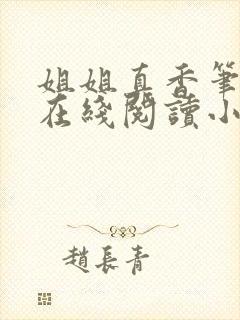 姐姐直香筆
在綫閱讀小
趙長青